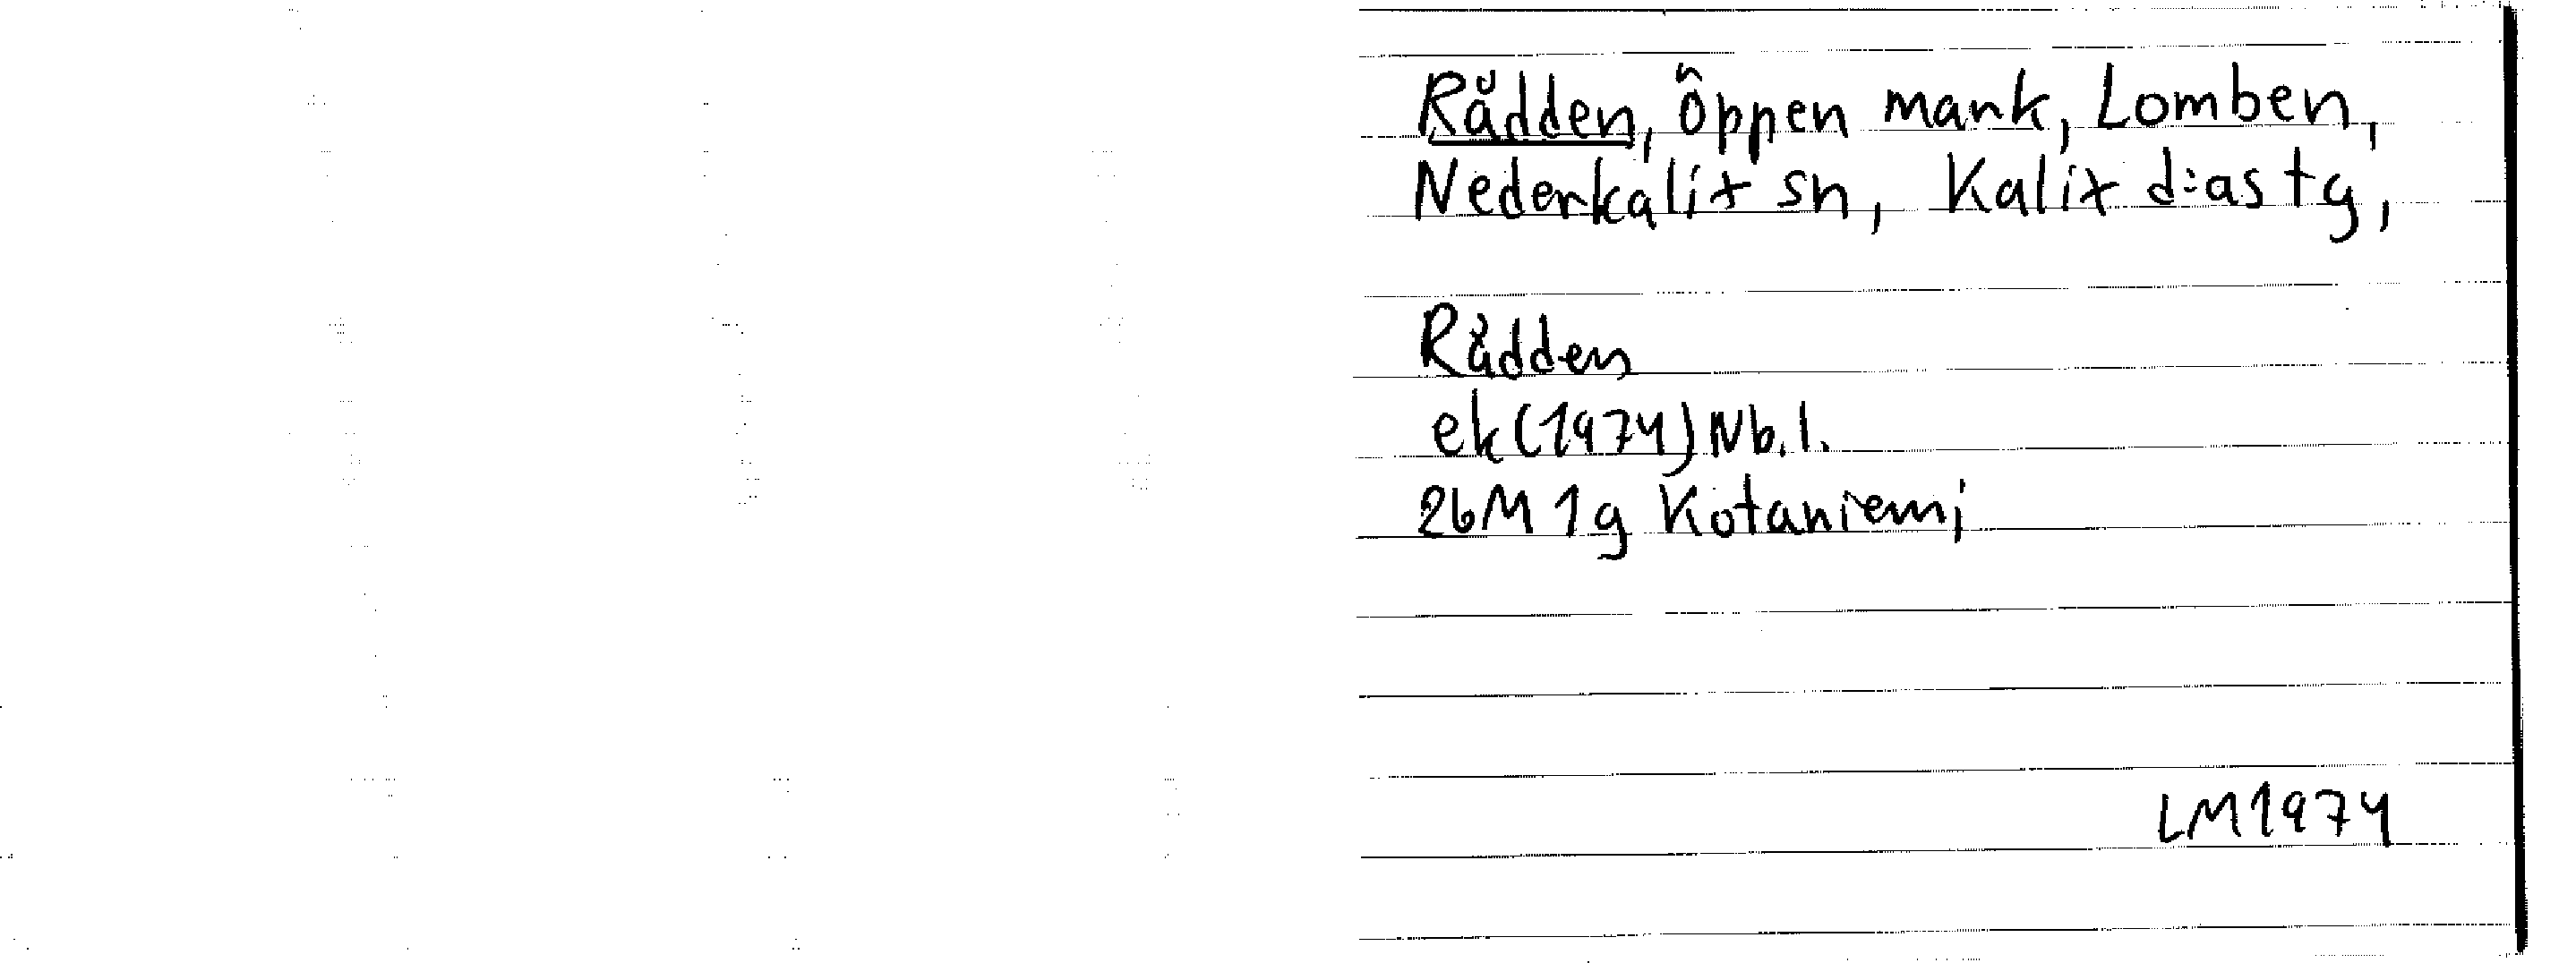 Rådden, öppen mark, Lomben,
Nederkalix sn, Kalix d:as tg,
Rådden
ek (1974) Nb.l.
26M 1g Kotaniemi
LM1974